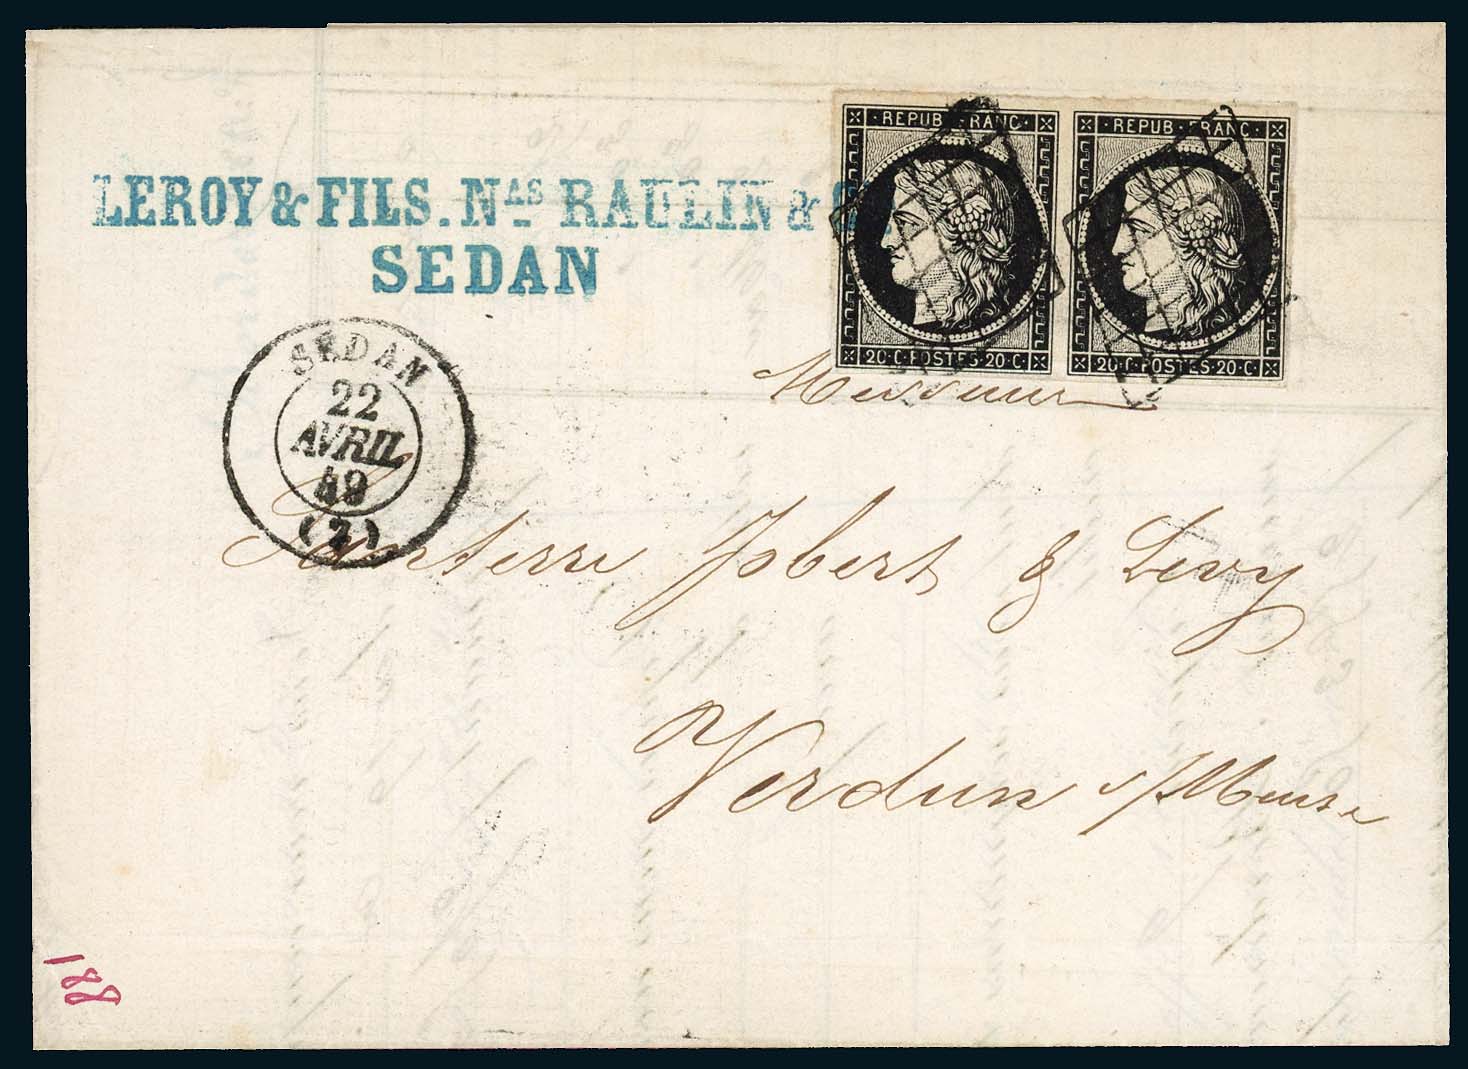 REPUB·FRANC·
REPUB·FRANC·
LEROY & FILS. NAS RAULIN &
SEDAN
20·C·POSTES·20·C·
20·C·POSTES·20·C·
Messieurs
SEDAN
22
AVRIL
49
(7)
Santerre Jobert & Levy
Verdun s/Meuse
188